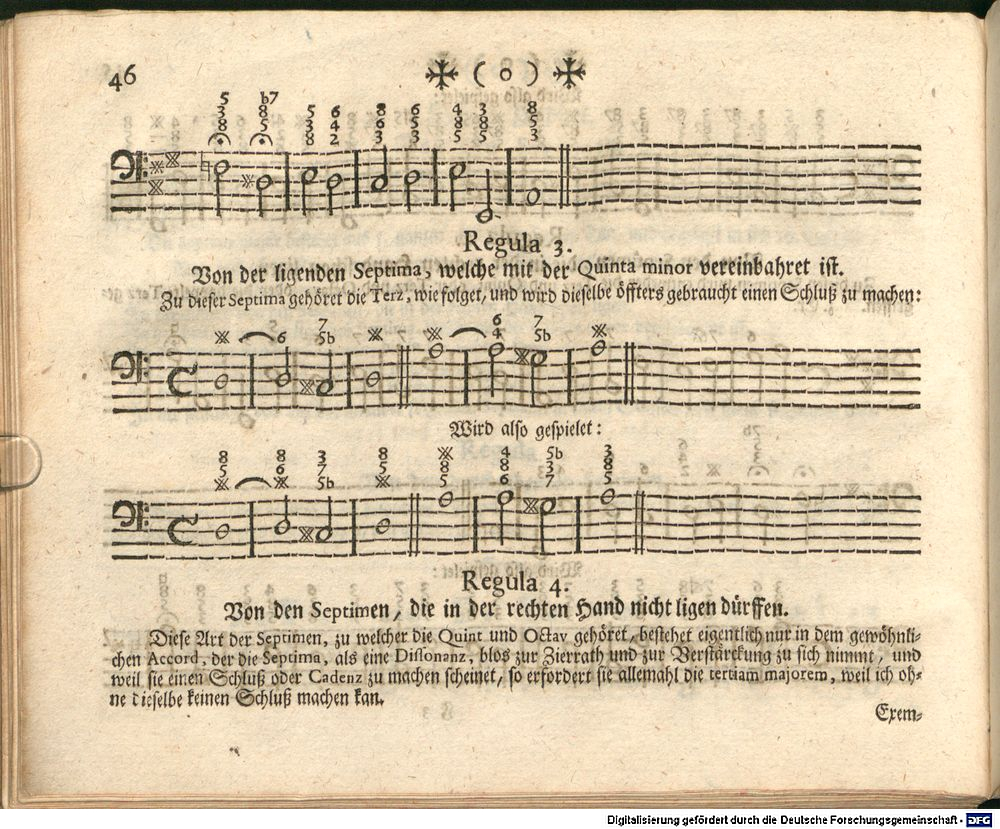 46
( o )
5 b7 5 6 8 6 4 3 8
3 8 3 4 6 5 3 8 5
8 5 8 2 3 3 5 5 3
Regula 3.
Von der ligenden Septima, welche mit der Quinta minor vereinbahret ist.
Zu dieser Septima gehöret die Terz, wie folget, und wird dieselbe öffters gebraucht einen Schluß zu machen:
6 7 7
6 5b 4 5b
Wird also gespielet:
8 8 3 8 4 5b 3
5 6 7 5 8 8 3 8
5b 5 6 7 5
Regula 4.
Von den Septimen, die in der rechten Hand nicht ligen dürffen.
Diese Art der Septimen, zu welcher die Quint und Octav gehöret, bestehet eigentlich nur in dem gewöhnli-
chen Accord, der die Septima, als eine Dissonanz, blos zur Zierrath und zur Verstärckung zu sich nimmt, und
weil sie einen Schluß oder Cadenz zu machen scheinet, so erfordert sie allemahl die tertiam majorem, weil ich oh-
ne dieselbe keinen Schluß machen kan.
Exem-
Digitalisierung gefördert durch die Deutsche Forschungsgemeinschaft - DFG